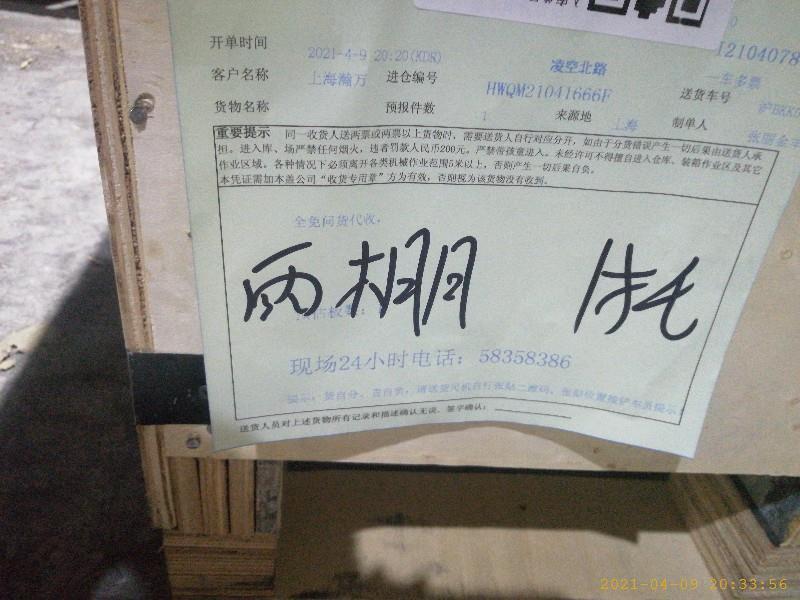 开单时间 2021-4-9 20:20(KDR) 凌空北路
客户名称 上海瀚万 进仓编号 HWQM21041666F 一车多票 送货车号
货物名称 预报件数 1 来源地 上海 制单人
重要提示 同一收货人送两票或两票以上货物时，需要送货人自行对应分开，如由于分货错误产生一切后果由送货人承
担。进入库、场严禁任何烟火，违者罚款人民币200元。严禁带孩童进入。未经许可不得擅自进入仓库、装箱作业区及其它
作业区域。各种情况下必须离开各类机械作业范围5米以上，否则产生一切后果自负。
本凭证需加本盖公司“收货专用章”方为有效，否则视为该货物没有收到。
全免问货代收，
雨棚
现场24小时电话：58358386
提示：货自分、责自负，请送货司机自行张贴二维码、张贴位置按铲车员提示
送货人员对上述货物所有记录和描述确认无误，签字确认：
2021-04-09 20:33:56